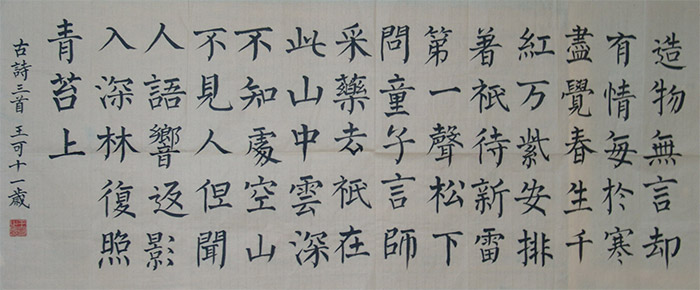 造物無言却
有情每於寒
盡覺春生千
紅万紫安排
著祇待新雷
第一聲松下
問童子言師
采藥去祇在
此山中雲深
不知處空山
不見人但聞
人語響返影
入深林復照
青苔上
古詩三首 王可十一歲